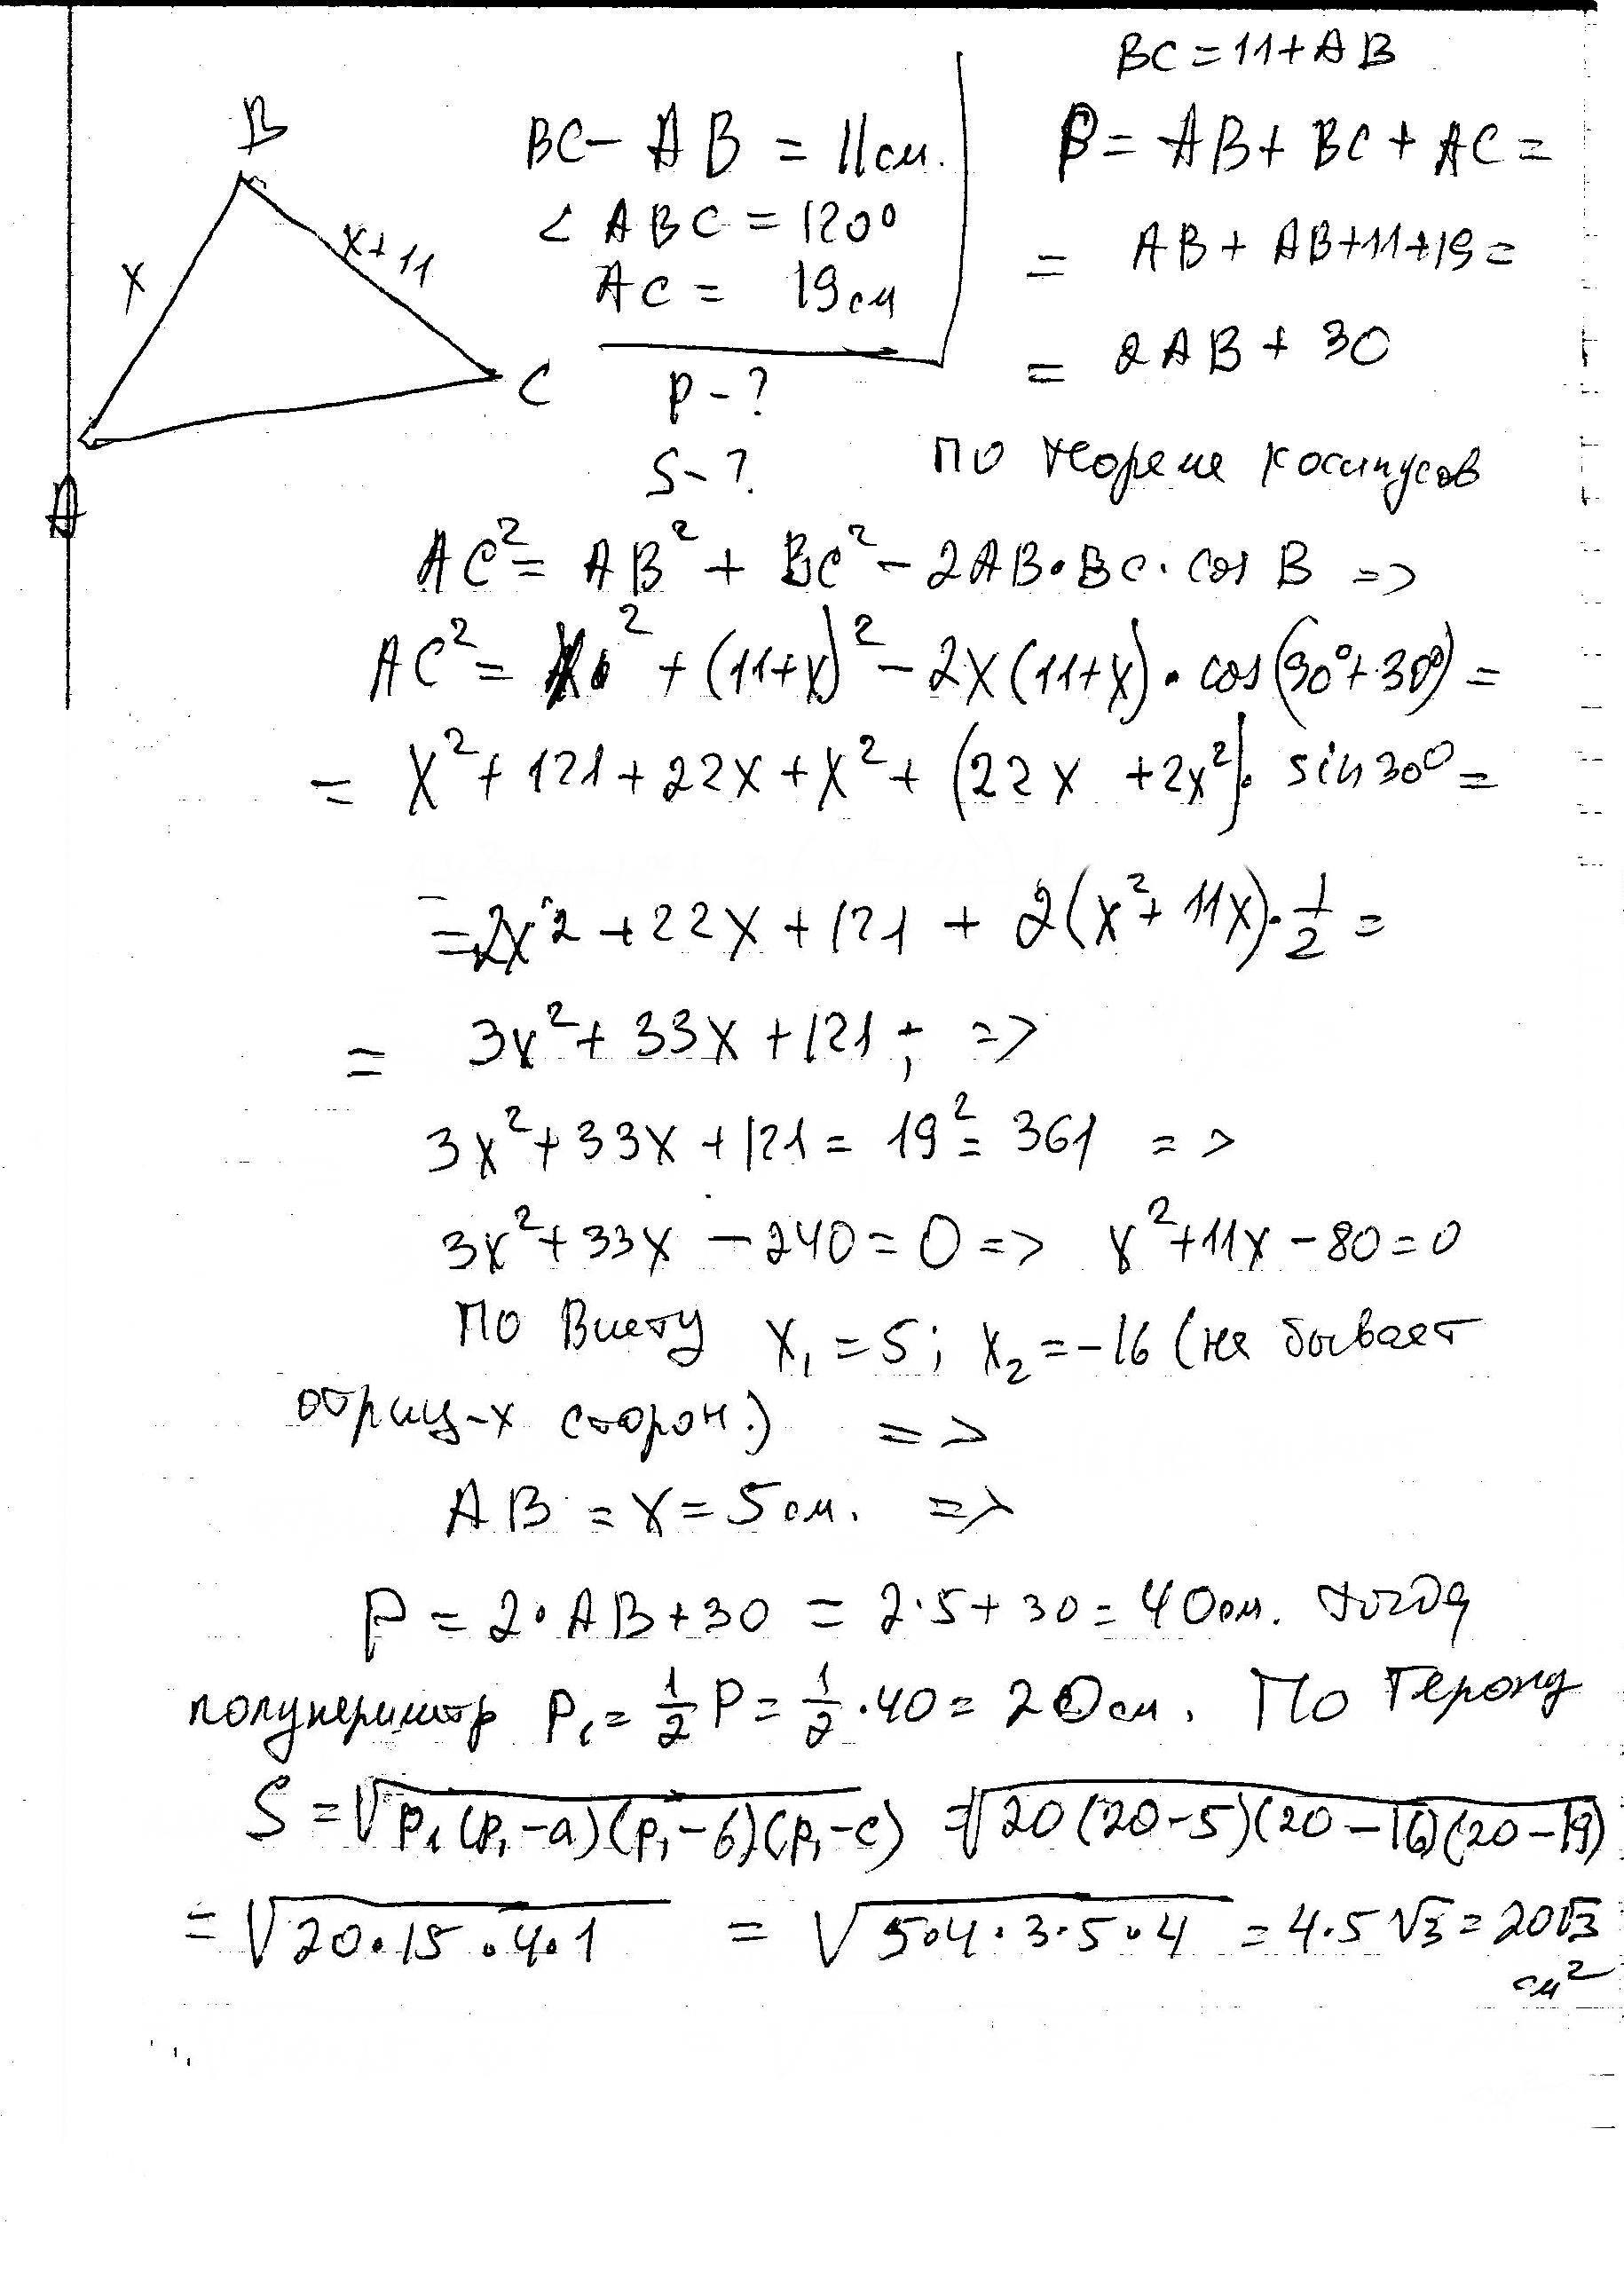 BC = 11 + AB
B
BC - AB = 11 см.
P = AB + BC + AC =
x
x + 11
< ABC = 120°
= AB + AB + 11 + 19 =
AC = 19 см
= 2AB + 30
C
P - ?
A
S - ?
По теореме косинусов
AC² = AB² + BC² - 2AB · BC · cos B =>
AC² = x² + (11+x)² - 2x(11+x) · cos(90° + 30°) =
= x² + 121 + 22x + x² + (22x + 2x²) · sin 30° =
= 2x² + 22x + 121 + 2(x² + 11x) · 1/2 =
= 3x² + 33x + 121 ; =>
3x² + 33x + 121 = 19² = 361 =>
3x² + 33x - 240 = 0 => x² + 11x - 80 = 0
По Виету x₁ = 5; x₂ = -16 (не бывает
отриц-х сторон.) =>
AB = x = 5 см. =>
P = 2 · AB + 30 = 2 · 5 + 30 = 40 см. тогда
полупериметр P₁ = 1/2 P = 1/2 · 40 = 20 см. По Герону
S = √(p₁(p₁-a)(p₁-b)(p₁-c)) = √(20(20-5)(20-16)(20-19))
= √(20·15·4·1) = √(5·4·3·5·4) = 4·5√3 = 20√3
см²